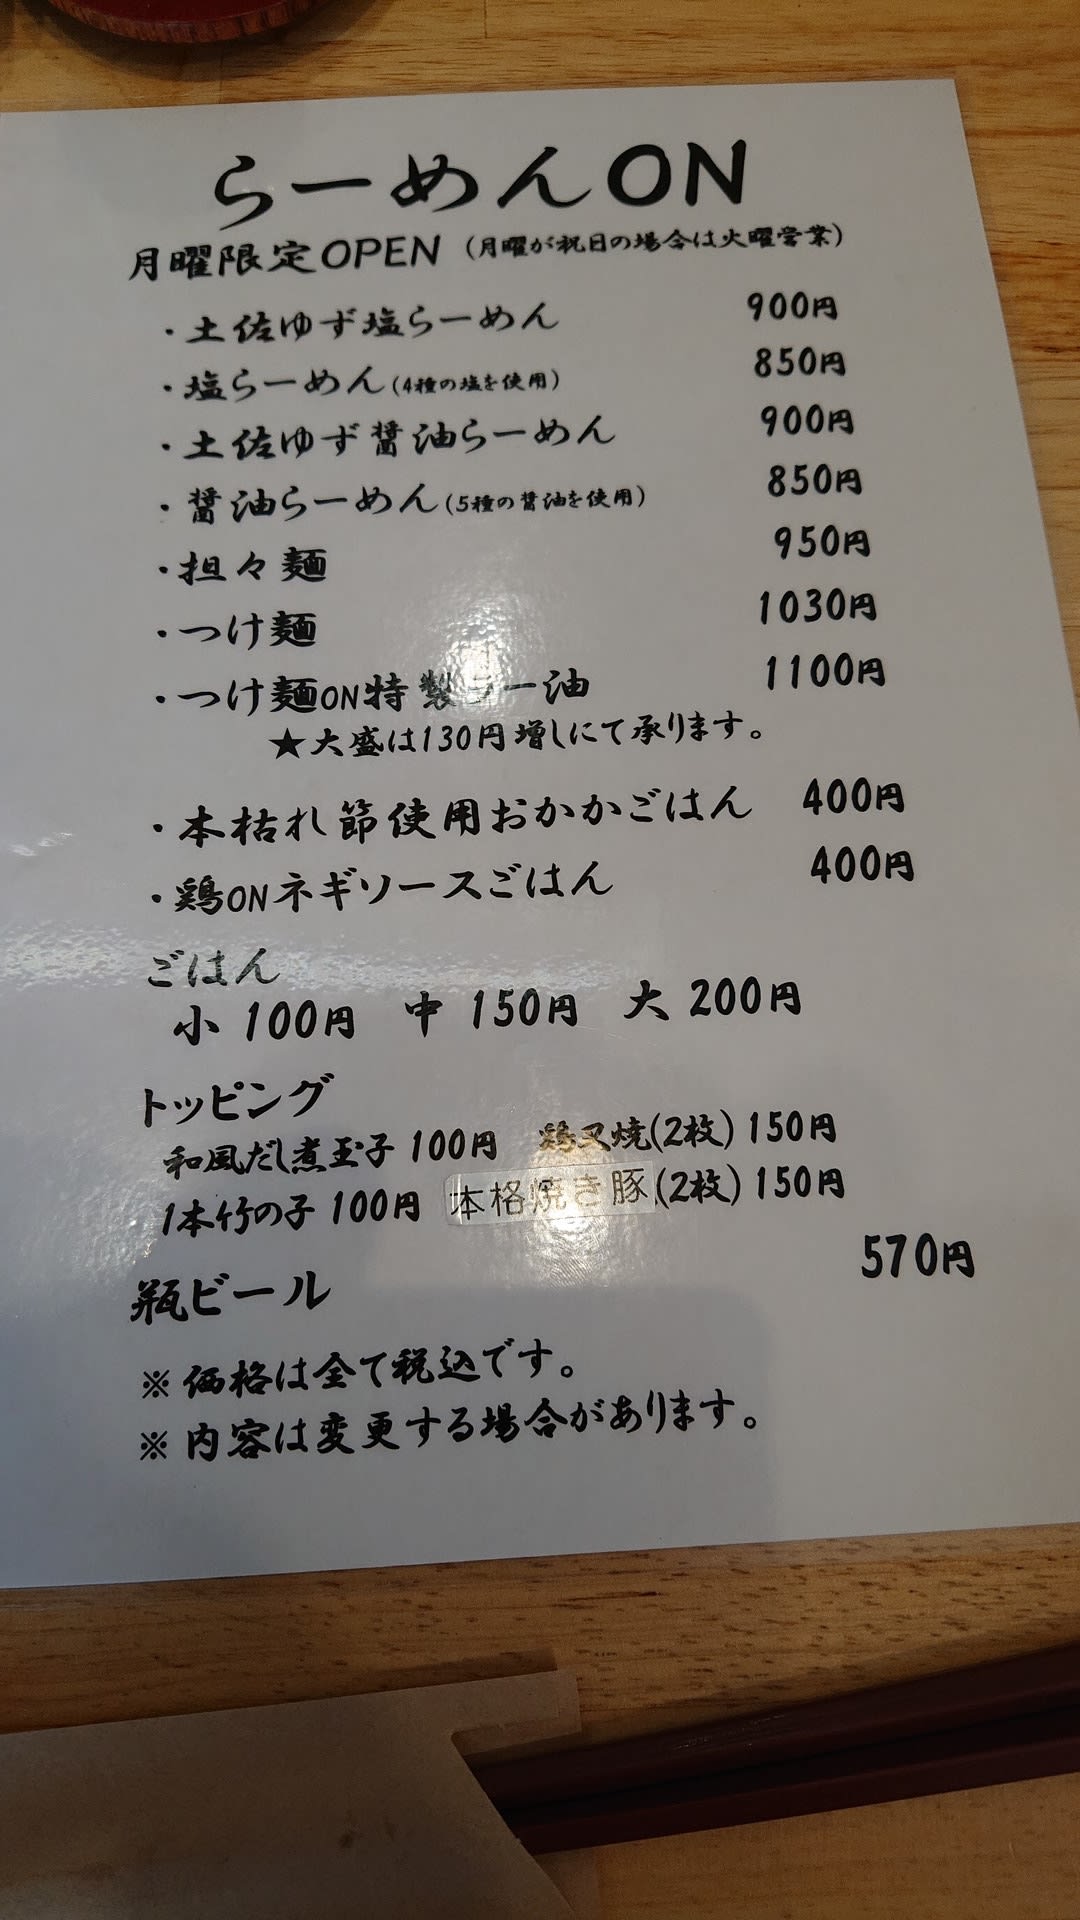 らーめんON
月曜限定OPEN（月曜が祝日の場合は火曜営業）
・土佐ゆず塩らーめん 900円
・塩らーめん（4種の塩を使用） 850円
・土佐ゆず醤油らーめん 900円
・醤油らーめん（5種の醤油を使用） 850円
・担々麺 950円
・つけ麺 1030円
・つけ麺ON特製ラー油 1100円
★大盛は130円増しにて承ります。
・本枯れ節使用おかかごはん 400円
・鶏ONネギソースごはん 400円
ごはん
小 100円 中 150円 大 200円
トッピング
和風だし煮玉子 100円 鶏叉焼（2枚）150円
1本竹の子 100円 本格焼き豚（2枚）150円
瓶ビール 570円
※ 価格は全て税込です。
※ 内容は変更する場合があります。